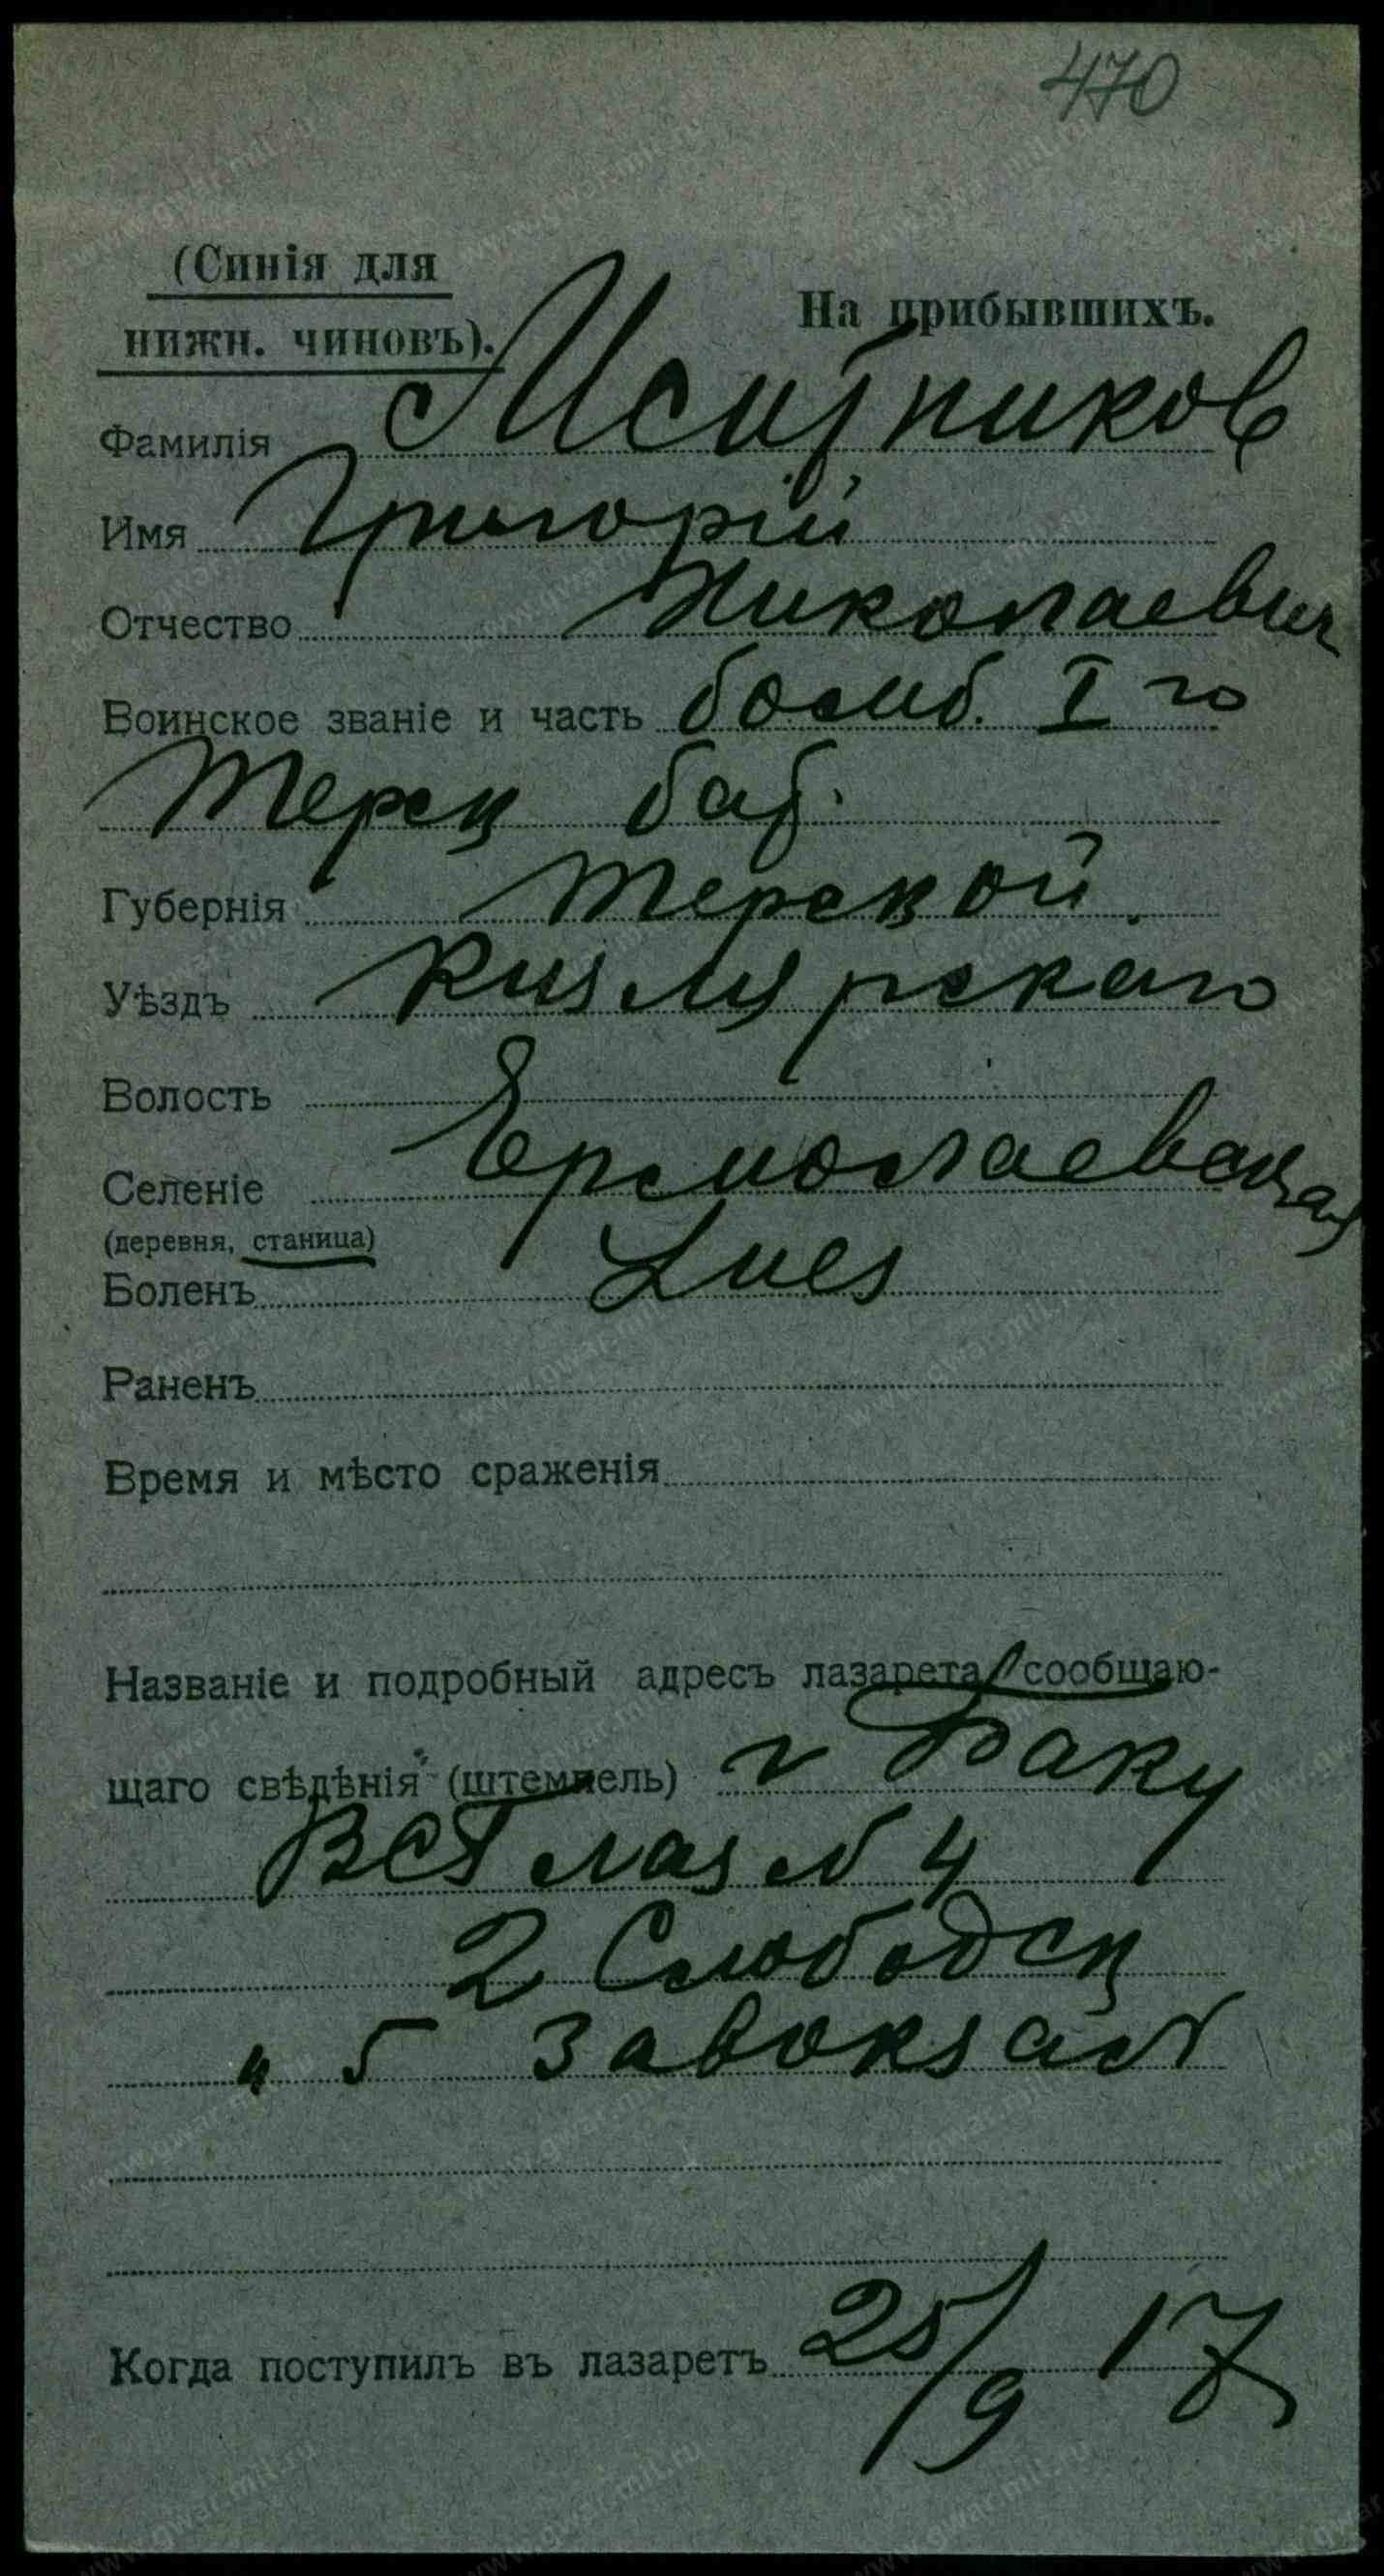 470
(Синія для
нижн. чиновъ).
На прибывшихъ.
Фамилія Мситников
Имя Григорій
Отчество Николаевич
Воинское званіе и часть бомб. I го
Терск бат.
Губернія Терской.
Уѣздъ Кизлярскаго
Волость
Селеніе Ермолаевская
(деревня, станица)
Боленъ Lues
Раненъ
Время и мѣсто сраженія
Названіе и подробный адресъ лазарета, сообщаю-
щаго свѣдѣнія (штемпель) г Баку
ВСГ лаз N 4
2 Слободск
" 5 Завокзал
Когда поступилъ въ лазаретъ 25/9 17